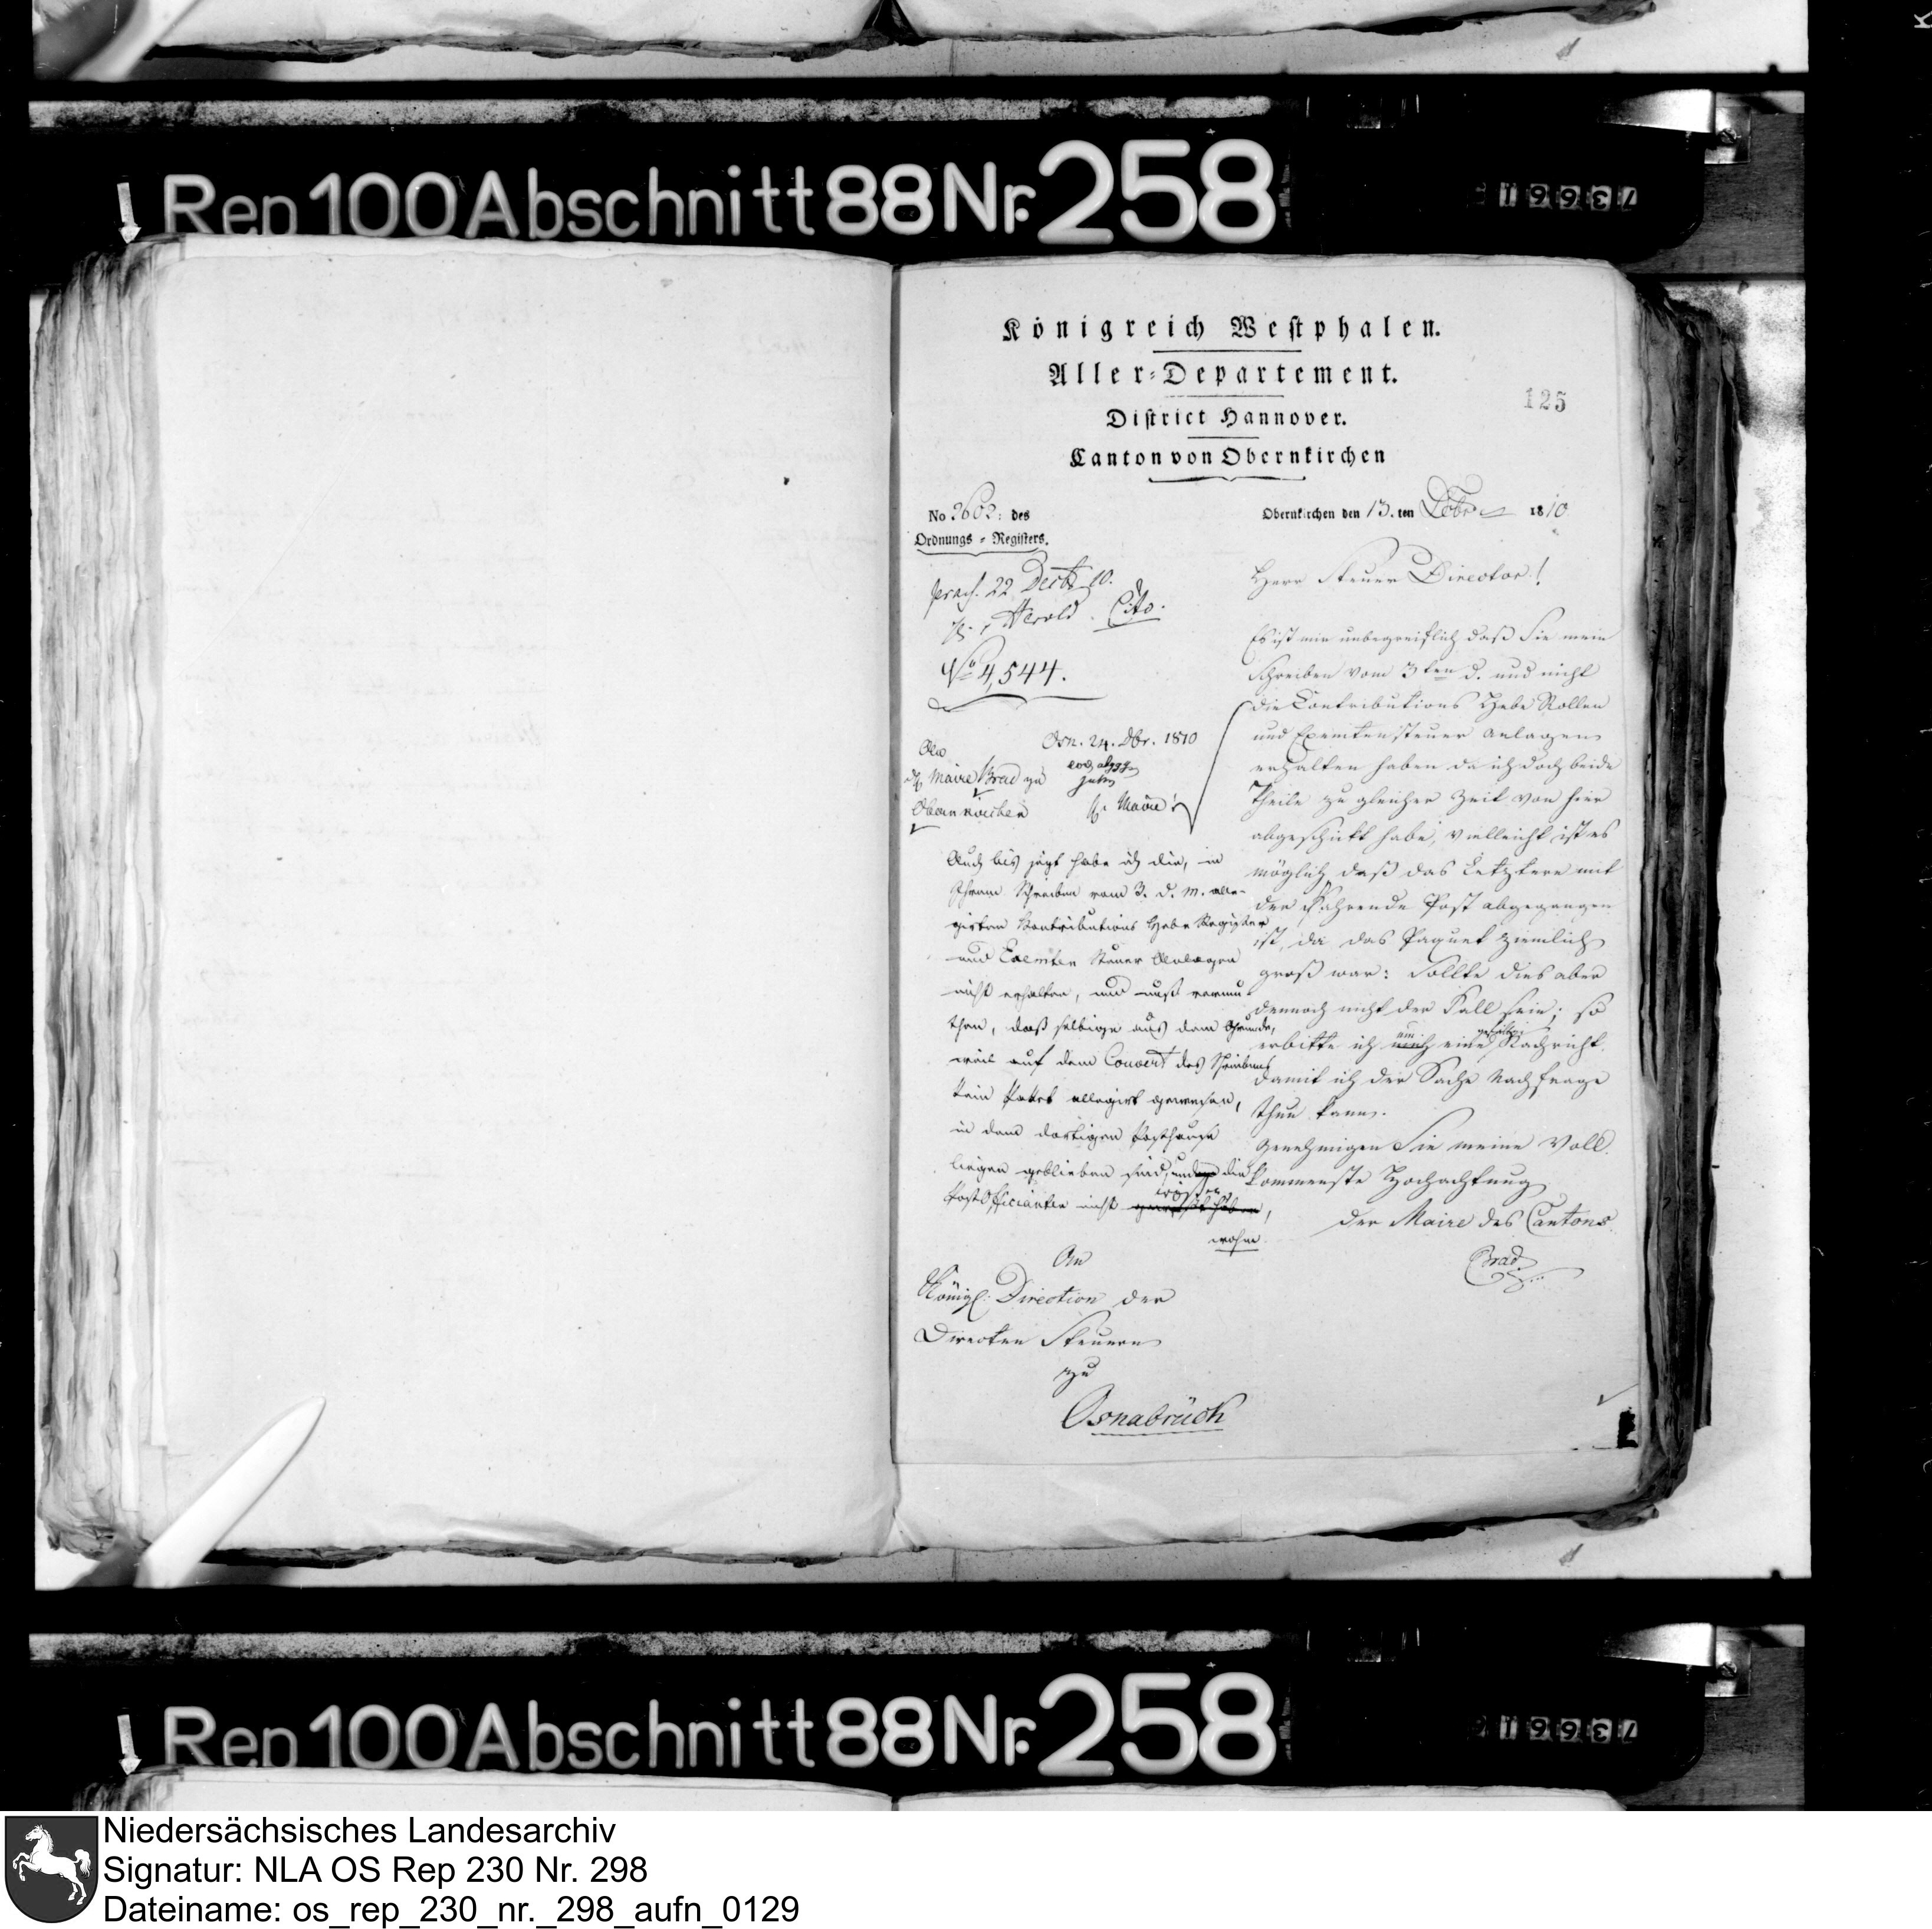 Rep 100 Abschnitt 88 Nr. 258
73661
Königreich Westphalen.
Aller-Departement.
125
District Hannover.
Canton von Obernkirchen
No 2602: des
Ordnungs-Registers.
Obernkirchen den 13.ten Dcbr 1810
praes. 22 Decbr 10.
Herold. Cito.
No 4,544.
Osn. 24. Dbr. 1810
An
Maire Brad zu
Obernkirchen
H. Maire!
Auch bis jetzt habe ich die, in
Ihrem Schreiben vom 3. d. M. alle-
girten Kontributions Hebe Register
und Exemten Steuer Anlagen
nicht erhalten, und muß vermu-
then, daß selbige aus dem Grunde,
weil auf dem Couvert des Schreibens
kein Paket allegirt gewesen,
in dem dortigen Posthause
liegen geblieben sind, und die
Post Officianten nicht wissen,
wohin
An
Königl: Direction der
Directen Steuern
zu
Osnabrück
Herr Steuer Director!
Es ist mir unbegreiflich daß Sie mein
Schreiben vom 3ten d. und nicht
die Contributions Hebe Rollen
und Exemtensteuer Anlagen
erhalten haben da ich doch beide
Theile zu gleicher Zeit von hier
abgeschickt habe, vielleicht ist es
möglich daß das Letztere mit
der fahrende Post abgegangen
ist, da das Paquet ziemlich
groß war: Sollte dies aber
dennoch nicht der Fall sein; so
erbitte ich um eine gefällige Nachricht
damit ich der Sache Nachfrage
thun kann.
Genehmigen Sie meine Voll-
kommenste Hochachtung
Der Maire des Cantons
Brad
Rep 100 Abschnitt 88 Nr. 258
73661
Niedersächsisches Landesarchiv
Signatur: NLA OS Rep 230 Nr. 298
Dateiname: os_rep_230_nr._298_aufn_0129